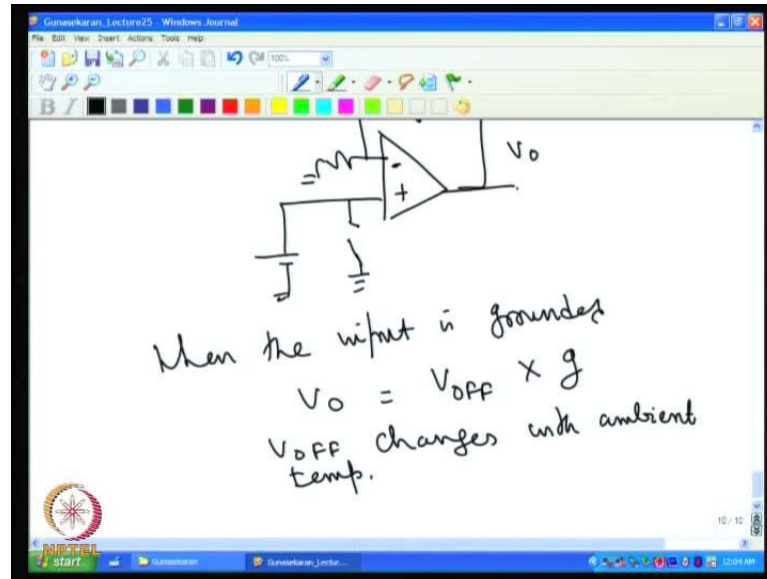 Gunasekaran_Lecture25 - Windows Journal
File Edit View Insert Actions Tools Help
100%
B I
-
+
V0
When the input is grounded
V0 = VOFF × g
VOFF changes with ambient
temp.
10 / 10
NPTEL
start
Gunasekaran
Gunasekaran_Lectur...
12:04 AM